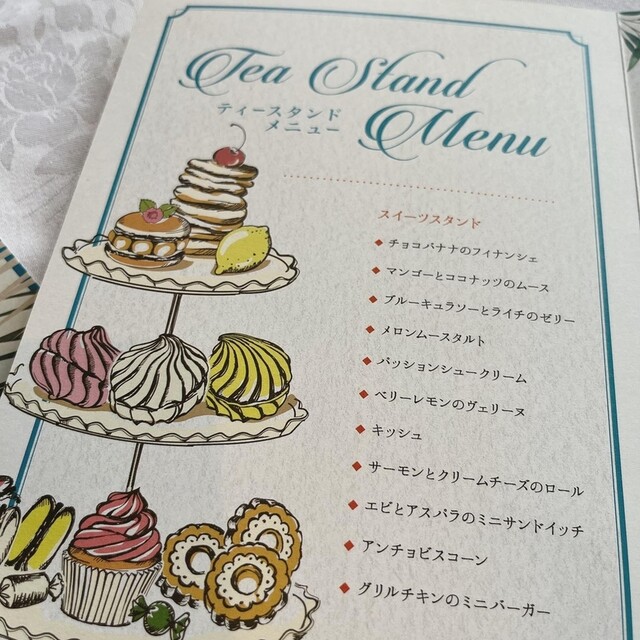 Tea Stand
Menu
ティースタンド
メニュー
スイーツスタンド
◆ チョコバナナのフィナンシェ
◆ マンゴーとココナッツのムース
◆ ブルーキュラソーとライチのゼリー
◆ メロンムースタルト
◆ パッションシュークリーム
◆ ベリーレモンのヴェリーヌ
◆ キッシュ
◆ サーモンとクリームチーズのロール
◆ エビとアスパラのミニサンドイッチ
◆ アンチョビスコーン
◆ グリルチキンのミニバーガー